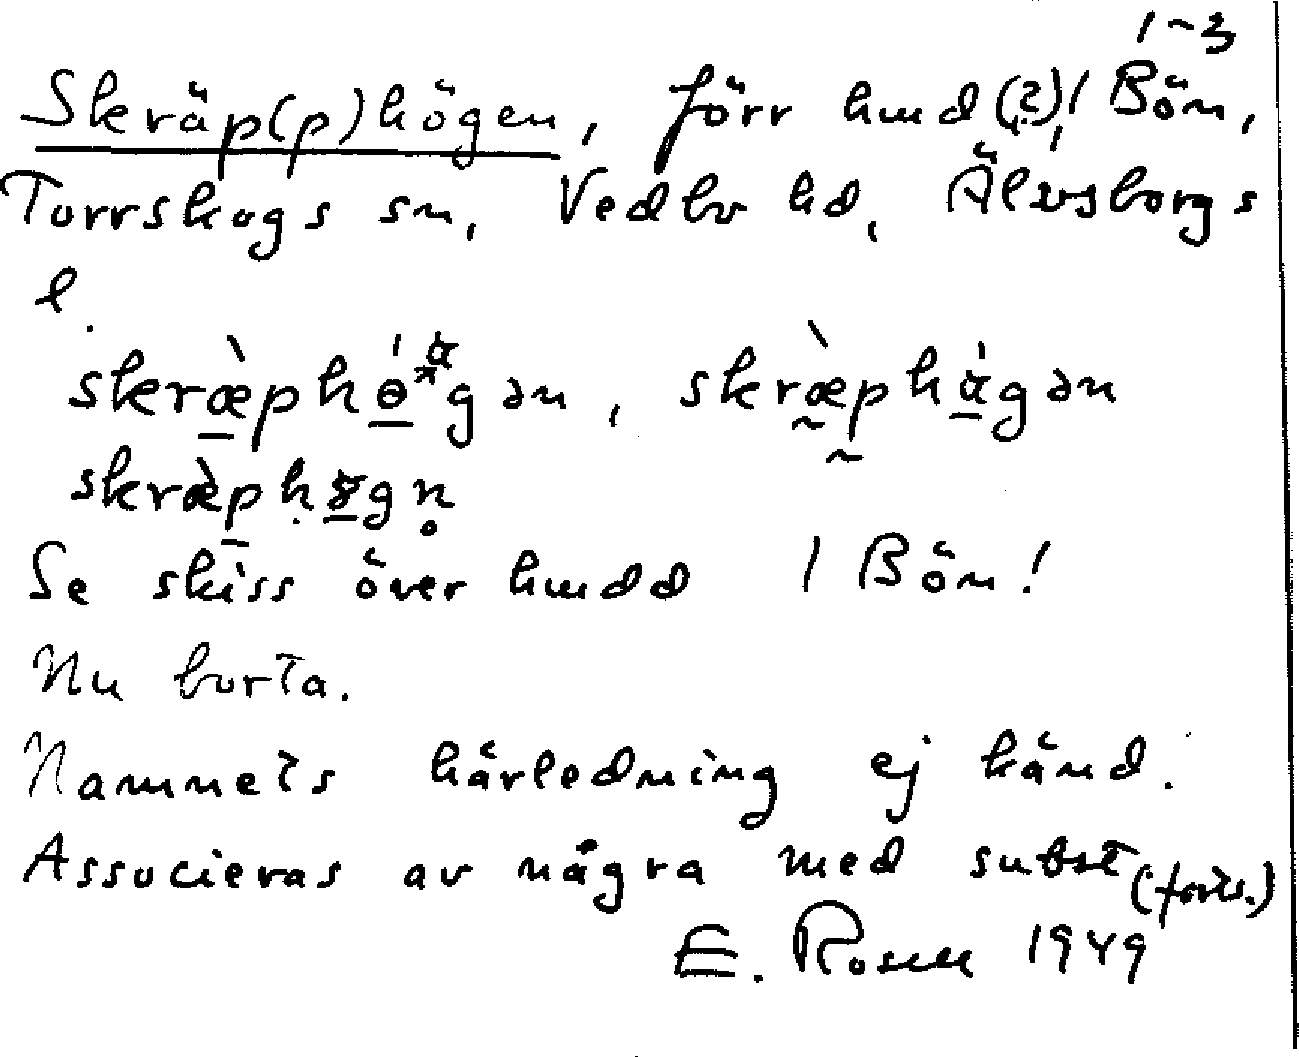 1-3
Skräp(p)högen, förr hmd(?), 1 Bön,
Torrskogs sn, Vedbo hd, Älvsborgs
l.
Se skiss över hmdd 1 Bön!
Nu borta.
Namnets härledning ej känd.
Associeras av några med subst (forts.)
E. Rosell 1949